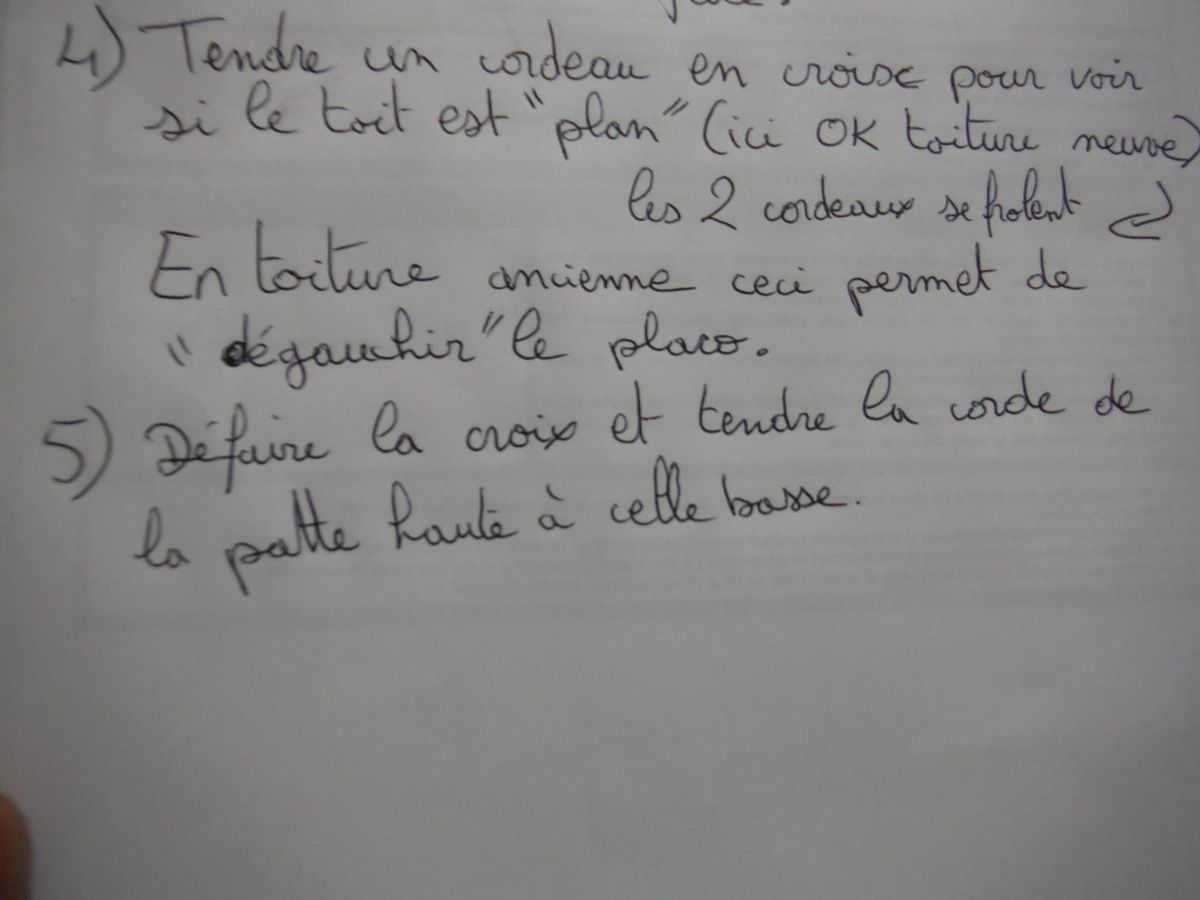 4) Tendre un cordeau en croix pour voir
si le toit est "plan" (ici OK toiture neuve)
les 2 cordeaux se frolent
En toiture ancienne ceci permet de
"dégauchir" le placo.
5) Défaire la croix et tendre la corde de
la patte haute à celle basse.